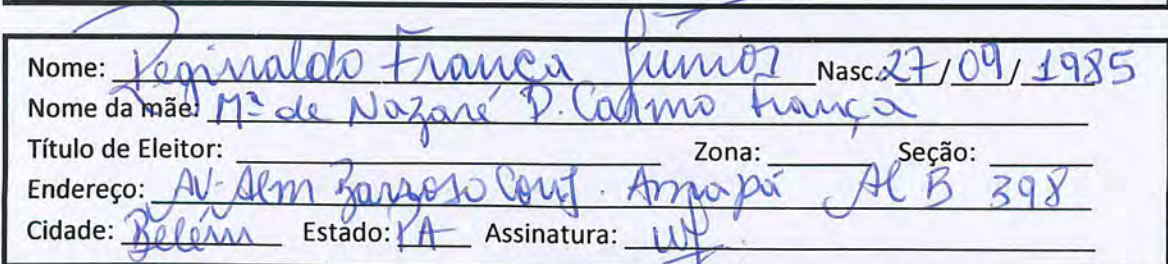 Nome: Reginaldo França Júnior Nasc.: 27/09/1985
Nome da mãe: Mª de Nazaré D. Carmo França
Título de Eleitor: Zona: Seção:
Endereço: AV. Alm Barroso Conj. Amapá Al B 398
Cidade: Belém Estado: PA Assinatura: